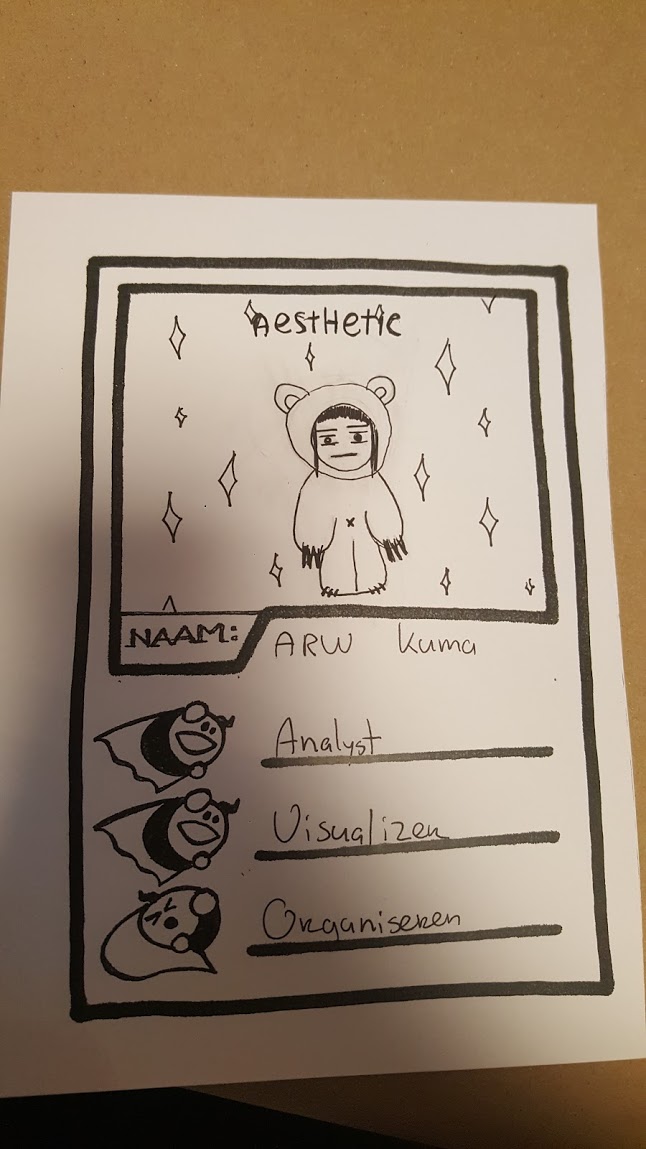 AestHetic
NAAM: ARW Kuma
Analyst
Visualizer
Organiseren